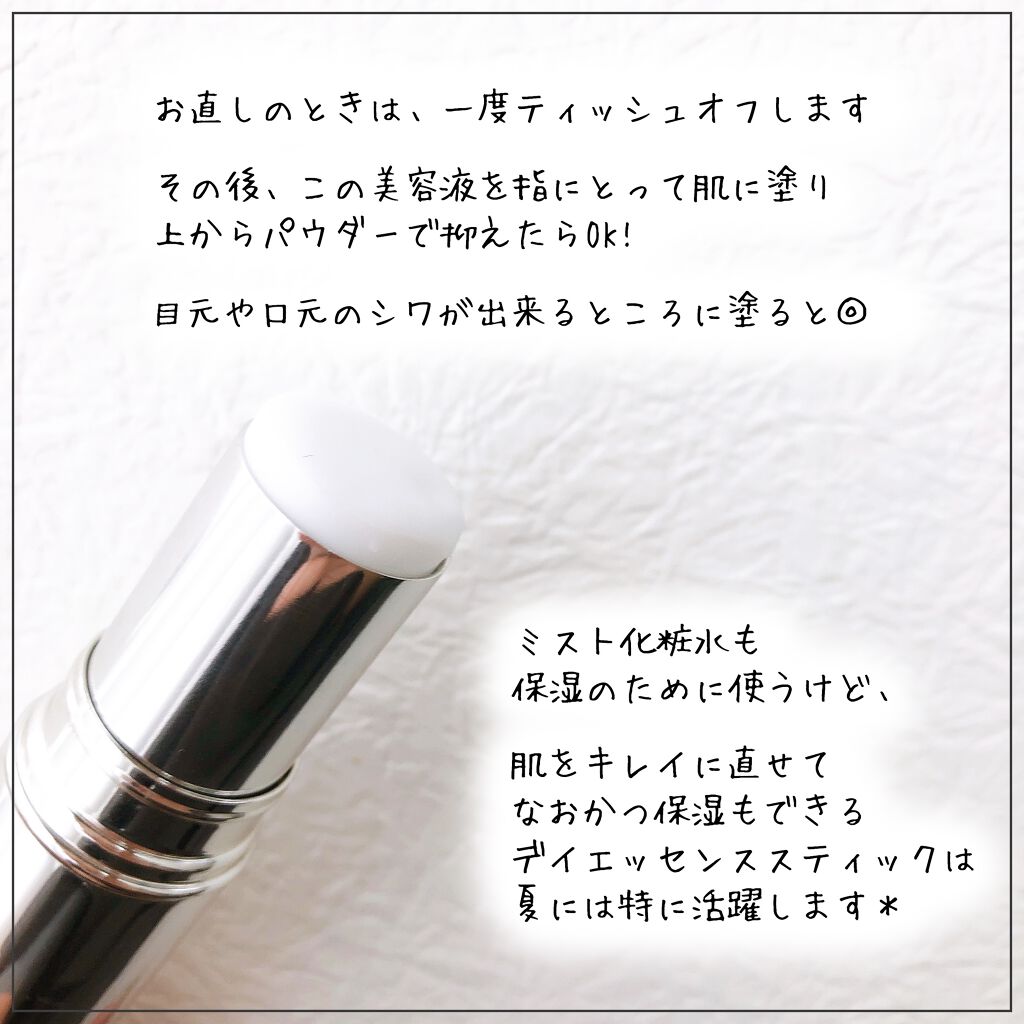 お直しのときは、一度ティッシュオフします
その後、この美容液を指にとって肌に塗り
上からパウダーで抑えたらOK!
目元や口元のシワが出来るところに塗ると◎
ミスト化粧水も
保湿のために使うけど、
肌をキレイに直せて
なおかつ保湿もできる
デイエッセンススティックは
夏には特に活躍します*